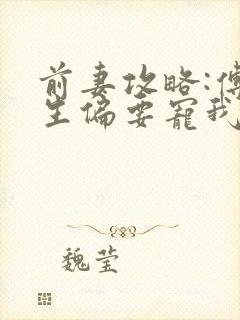 前妻攻略:傅
生偏要宠我
魏莹